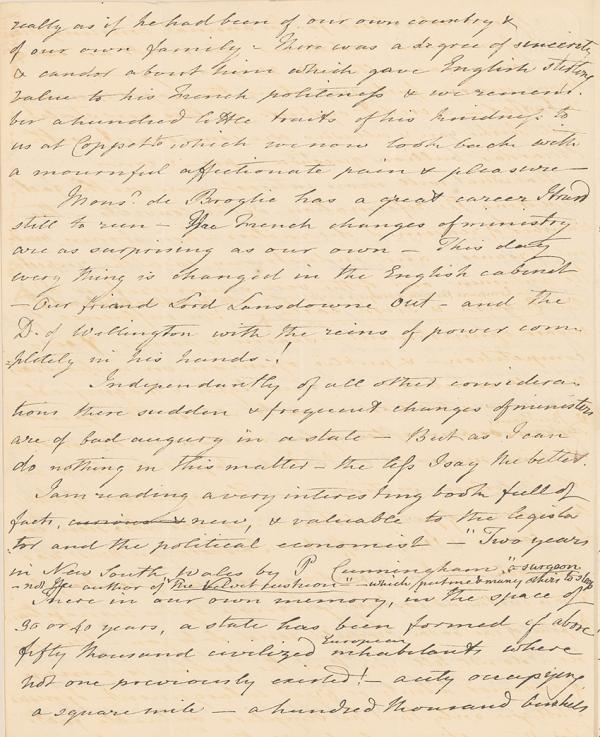 really as if he had been of our own country &
of our own family - There was a degree of sincerity
& candor about him which gave English sterling
value to his French politeness & we remem-
ber a hundred little traits of his kindness to
us at Coppet to which we now look back with
a mournful affectionate pain & pleasure -
Mons.r de Broglie has a great career I trust
still to run - The French changes of ministry
are as surprising as our own - This day
every thing is changed in the English cabinet
- Our friend Lord Lansdowne out - and the
D. of Wellington with the reins of power com
-pletely in his hands -!
Independantly of all other considera-
tions these sudden & frequent changes of ministers
are of bad augury in a state - But as I can
do nothing in this matter - the less I say the better.
I am reading a very interesting book full of
facts, curious & new, & valuable to the legisla
tor and the political economist - "Two years
in New South Wales by P Cunningham," a surgeon
- not the author of "The Velvet cushion" - which put me & many others to sleep
There in our own memory, in the space of
30 or 40 years, a state has been formed of above
fifty thousand civilized European inhabitants where
not one previously existed! - a city occupying
a square mile - a hundred thousand bushels